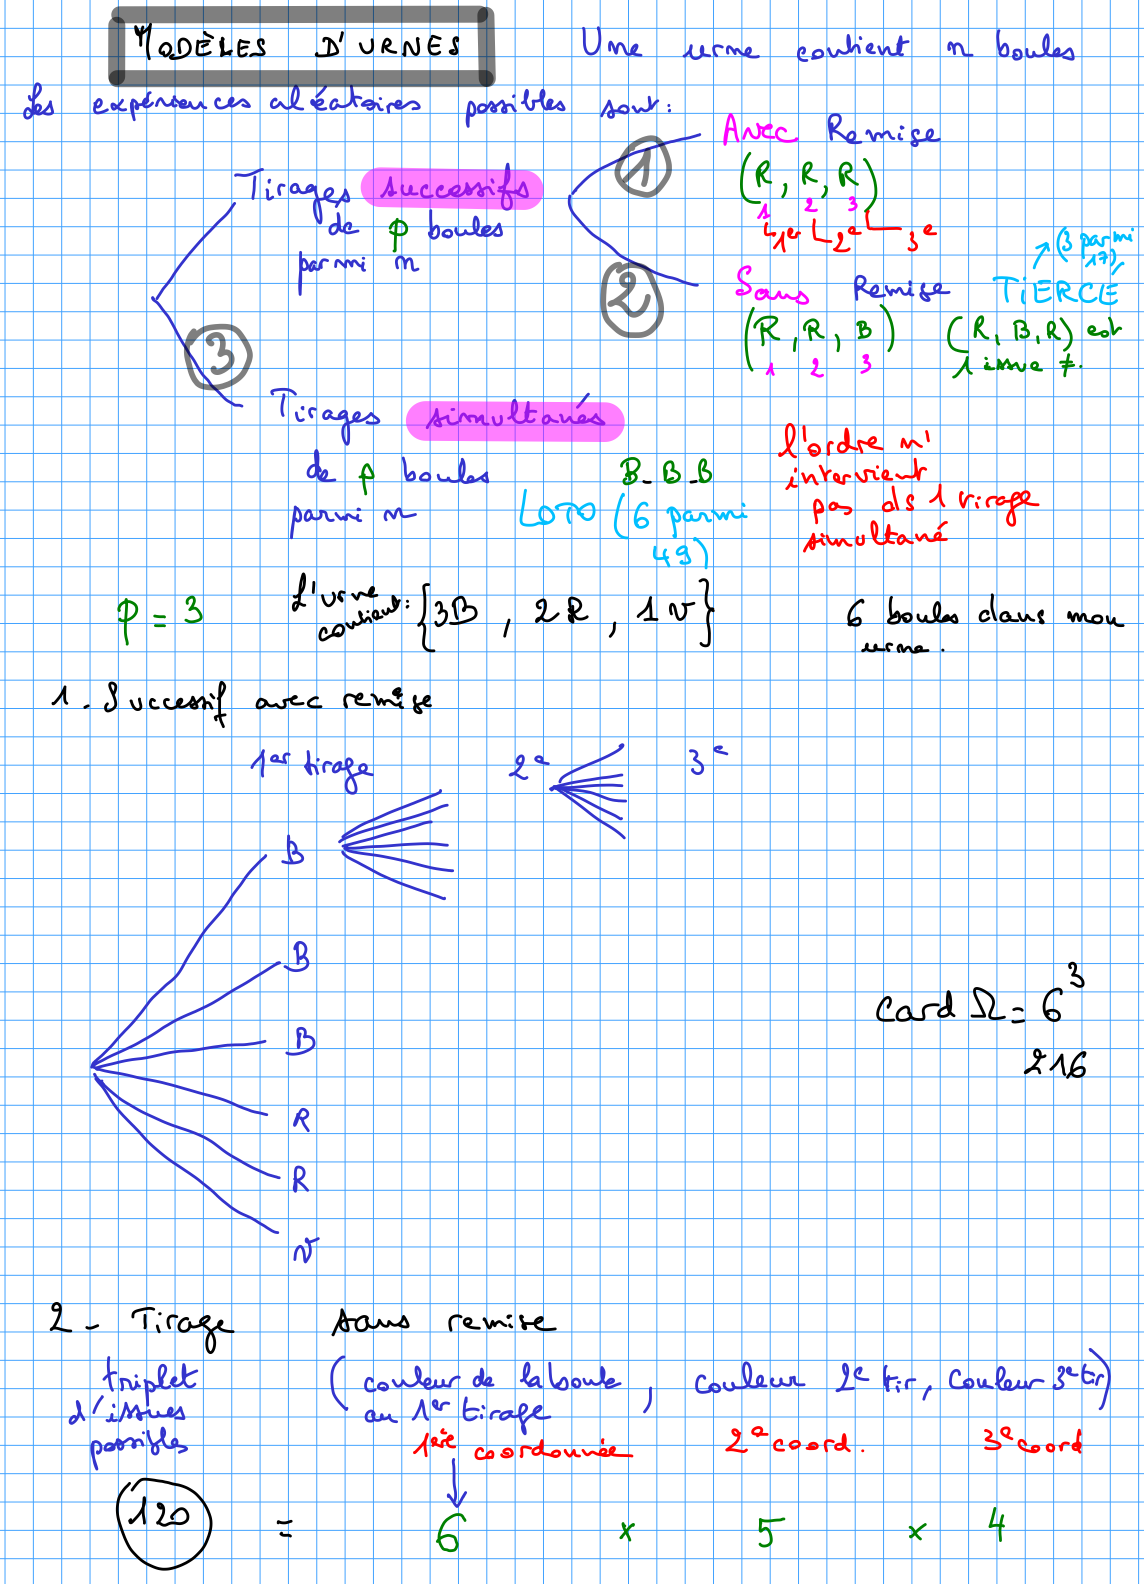 MODÈLES D'URNES
Une urne contient n boules
Les expériences aléatoires possibles sont:
Tirages successifs
de p boules
parmi n
1
Avec Remise
(R, R, R)
1 2 3
1er 2e 3e
2
Sans Remise
TIERCE
(3 parmi
17)
(R, R, B)
1 2 3
(R, B, R) est
1 issue ≠.
3
Tirages simultanés
de p boules
parmi n
B_B_B
LOTO (6 parmi
49)
l'ordre n'
intervient
pas ds 1 tirage
simultané
p = 3
L'urne
contient: {3B, 2R, 1V}
6 boules dans mon
urne.
1. Successif avec remise
1er tirage 2e 3e
B
B
B
R
R
V
card Ω = 6³
216
2 - Tirage sans remise
triplet
d'issues
possibles
(couleur de la boule
au 1er tirage
, couleur 2e tir, couleur 3e tir)
1ère coordonnée 2e coord. 3e coord
120 = 6 x 5 x 4